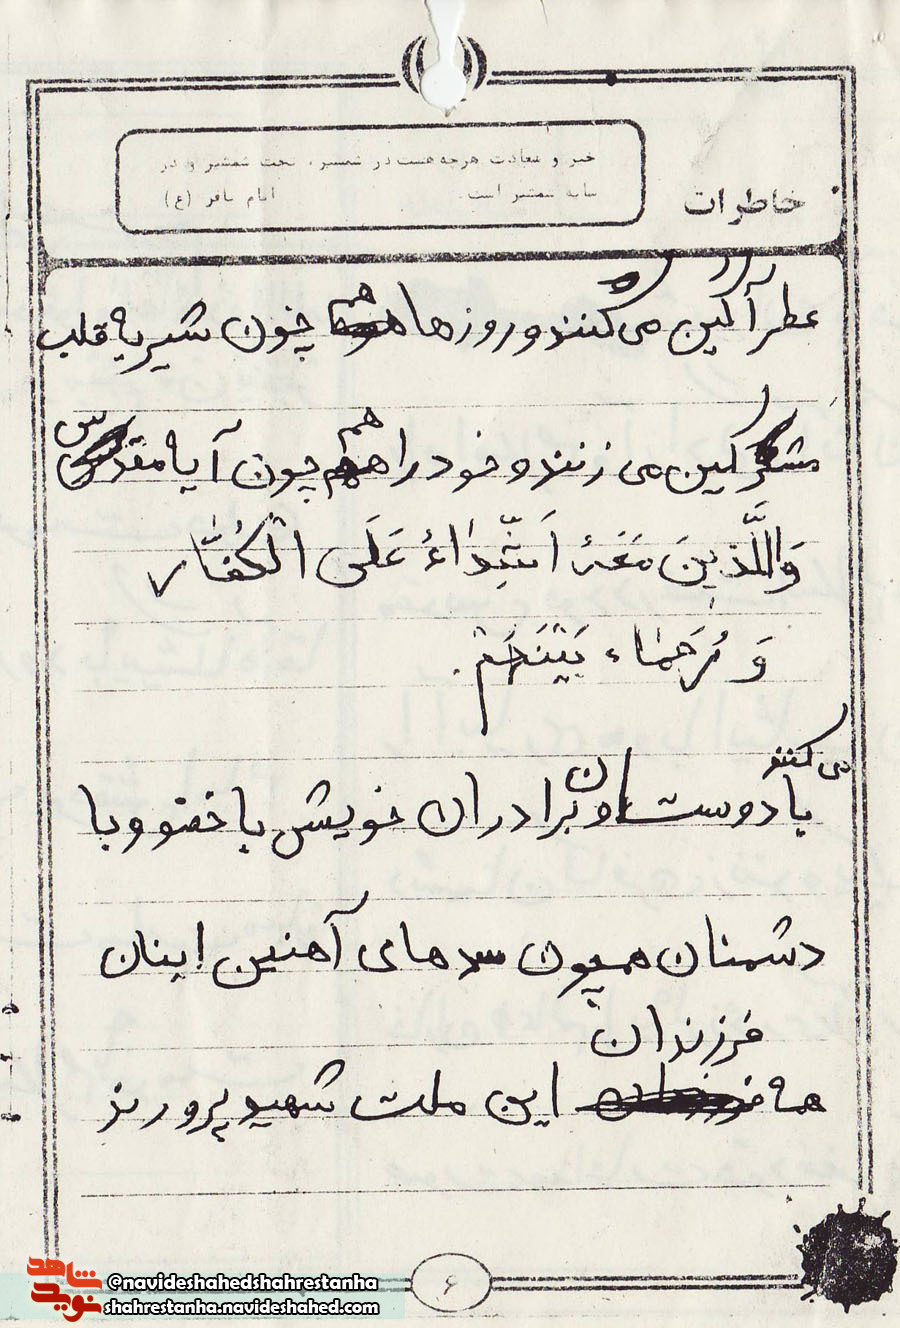 خیر و سعادت هرچه هست در شمشیر، تحت شمشیر و در
سایه شمشیر است. امام باقر (ع)
خاطرات
عطر آگین می کنند و روزها هم چون شیر به قلب
مشرکین می زنند و خود را هم چون آیه مقدس
وَالَّذینَ مَعَهُ اَشِّداٰءُ عَلَی الْکُفّٰار
وَ رُحَمٰاء بَیْنَهُمْ.
می کنند
با دوستان و برادران خویش با خضو و با
دشمنان همچون سدهای آهنین اینان
فرزندان
همه این ملت شهید پرورند
۶
شاهد
نوید
@navideshahedshahrestanha
shahrestanha.navideshahed.com